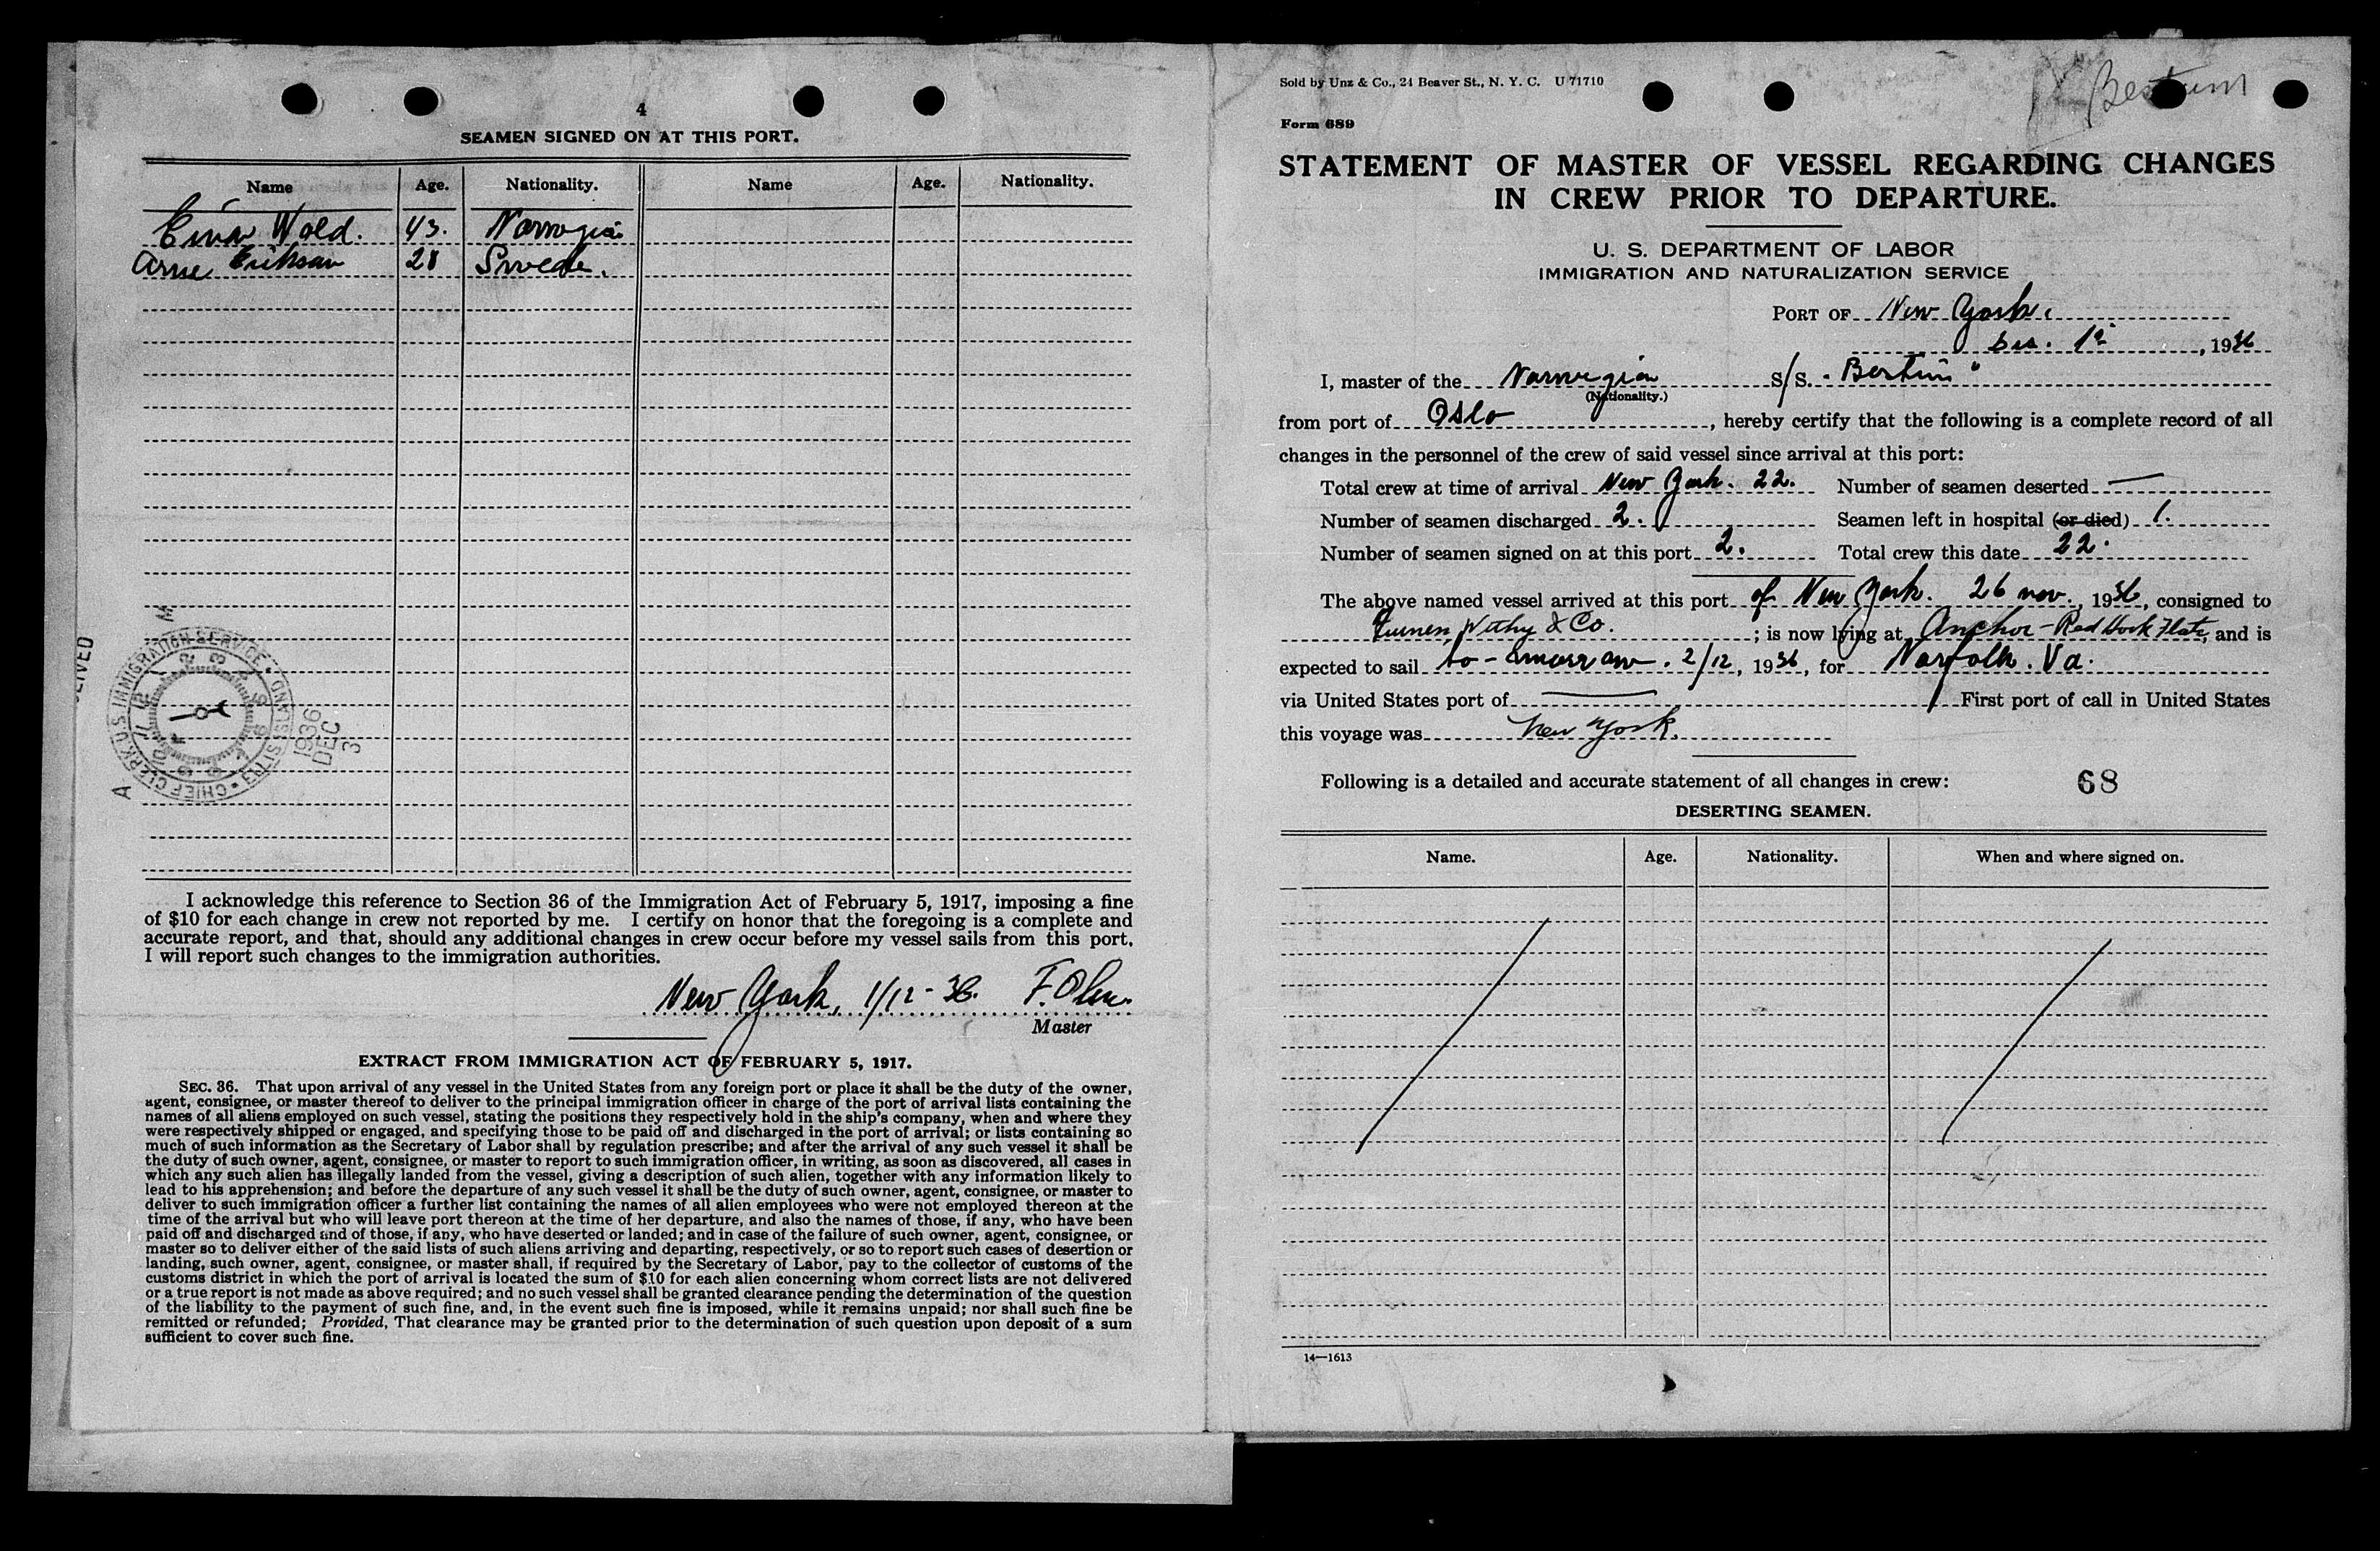 4
SEAMEN SIGNED ON AT THIS PORT.
Name Age. Nationality. Name Age. Nationality.
Einar Wold. 43. Norwegian
Arne Erikson 28 Swede.
RECEIVED
CHIEF CLERK U.S. IMMIGRATION SERVICE • ELLIS ISLAND.
1936
DEC
3
I acknowledge this reference to Section 36 of the Immigration Act of February 5, 1917, imposing a fine
of $10 for each change in crew not reported by me. I certify on honor that the foregoing is a complete and
accurate report, and that, should any additional changes in crew occur before my vessel sails from this port,
I will report such changes to the immigration authorities.
New York, 1/12-36. F. Olsen
Master
EXTRACT FROM IMMIGRATION ACT OF FEBRUARY 5, 1917.
SEC. 36. That upon arrival of any vessel in the United States from any foreign port or place it shall be the duty of the owner,
agent, consignee, or master thereof to deliver to the principal immigration officer in charge of the port of arrival lists containing the
names of all aliens employed on such vessel, stating the positions they respectively hold in the ship's company, when and where they
were respectively shipped or engaged, and specifying those to be paid off and discharged in the port of arrival; or lists containing so
much of such information as the Secretary of Labor shall by regulation prescribe; and after the arrival of any such vessel it shall be
the duty of such owner, agent, consignee, or master to report to such immigration officer, in writing, as soon as discovered, all cases in
which any such alien has illegally landed from the vessel, giving a description of such alien, together with any information likely to
lead to his apprehension; and before the departure of any such vessel it shall be the duty of such owner, agent, consignee, or master to
deliver to such immigration officer a further list containing the names of all alien employees who were not employed thereon at the
time of the arrival but who will leave port thereon at the time of her departure, and also the names of those, if any, who have been
paid off and discharged and of those, if any, who have deserted or landed; and in case of the failure of such owner, agent, consignee, or
master so to deliver either of the said lists of such aliens arriving and departing, respectively, or so to report such cases of desertion or
landing, such owner, agent, consignee, or master shall, if required by the Secretary of Labor, pay to the collector of customs of the
customs district in which the port of arrival is located the sum of $10 for each alien concerning whom correct lists are not delivered
or a true report is not made as above required; and no such vessel shall be granted clearance pending the determination of the question
of the liability to the payment of such fine, and, in the event such fine is imposed, while it remains unpaid; nor shall such fine be
remitted or refunded; Provided, That clearance may be granted prior to the determination of such question upon deposit of a sum
sufficient to cover such fine.
Sold by Unz & Co., 24 Beaver St., N. Y. C. U 71710
Form 689
STATEMENT OF MASTER OF VESSEL REGARDING CHANGES
IN CREW PRIOR TO DEPARTURE.
U. S. DEPARTMENT OF LABOR
IMMIGRATION AND NATURALIZATION SERVICE
PORT OF New York.
Des. 1st, 1936
I, master of the Norwegian S/S. "Bestum"
(Nationality.)
from port of Oslo, hereby certify that the following is a complete record of all
changes in the personnel of the crew of said vessel since arrival at this port:
Total crew at time of arrival New York. 22. Number of seamen deserted —
Number of seamen discharged 2. Seamen left in hospital (or died) 1.
Number of seamen signed on at this port 2. Total crew this date 22.
The above named vessel arrived at this port of New York. 26 nov., 1936, consigned to
Furness, Withy & Co.; is now lying at Anchor-Red Hook Flats, and is
expected to sail to-morrow. 2/12, 1936, for Norfolk. Va.
via United States port of — First port of call in United States
this voyage was New York.
Following is a detailed and accurate statement of all changes in crew: 68
DESERTING SEAMEN.
Name. Age. Nationality. When and where signed on.
14—1613